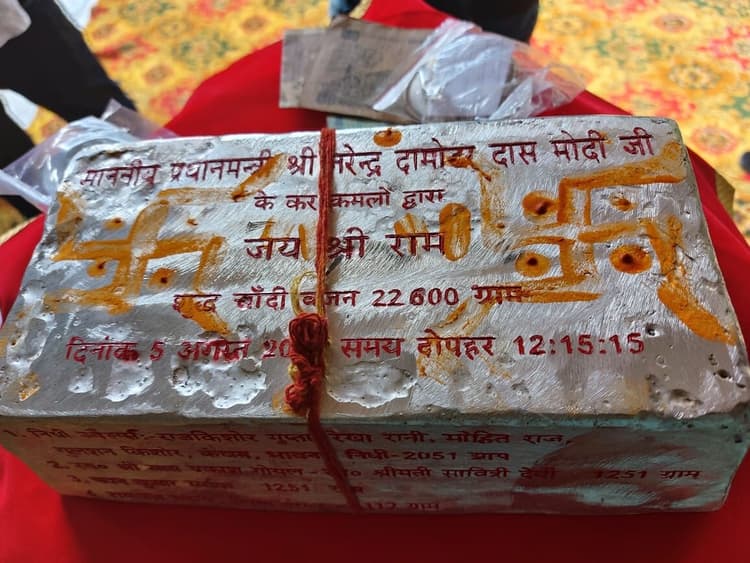 माननीय प्रधानमन्त्री श्री नरेन्द्र दामोदर दास मोदी जी
के कर कमलो द्वारा
जय श्री राम
शुद्ध चाँदी वजन 22.600 ग्राम
दिनांक 5 अगस्त 20 समय दोपहर 12:15:15
1. निधी :- राजकिशोर गुप्ता, रेखा रानी, मोहित राज,
किशोर, निधी-2051 ग्राम
2. गोयल श्रीमती सावित्री देवी 1251 ग्राम
3. 1251
4. 112 ग्राम